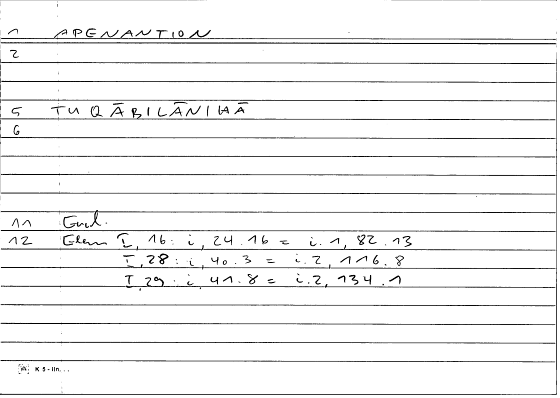 1 APENANTION
2
5 TUQĀBILĀNIHĀ
6
11 Eucl.
12 Elem I, 16: i, 24.16 = i.1, 82.13
I, 28: i, 40.3 = i.2, 116.8
I, 29: i, 41.8 = i.2, 134.1
K 5 - lin. . .